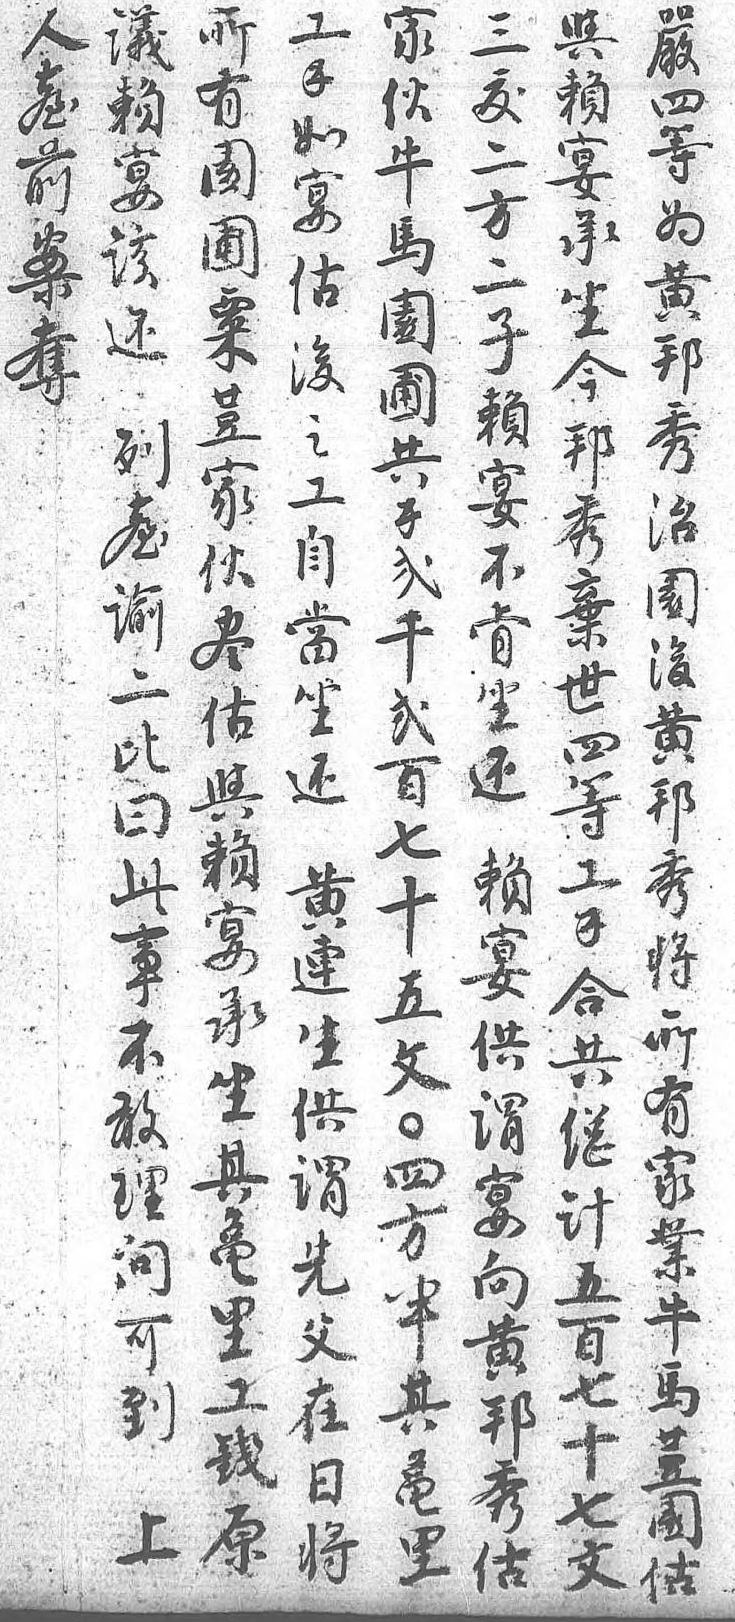 嚴四等为黄邦秀治園後黄邦秀将所有家業牛馬荳園估
與賴宴承坐今邦秀棄世四等工𠄢合共継計五百七十七文
三交二方二子賴宴不肯坐还 賴宴供谓宴向黄邦秀估
家伙牛馬園圃共𠄢弍千弍百七十五文○四方半其亀里
工𠄢如宴估後之工自當坐还 黄連生供谓先父在日将
所有園圃粟荳家伙尽估與賴宴承坐其亀里工錢原
議賴宴該还 列臺谕二比曰此事不敢理问可到 上
人臺前案奪